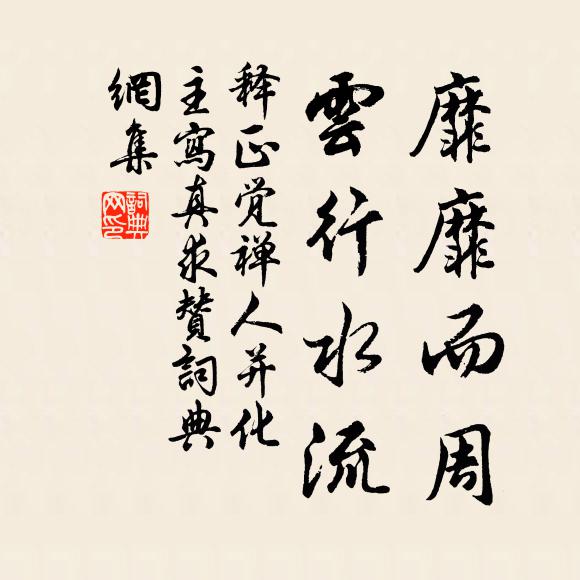 靡靡而周
雲行水流
释正觉禅人并化
主寫真求贊詞典
網集
詞典网印